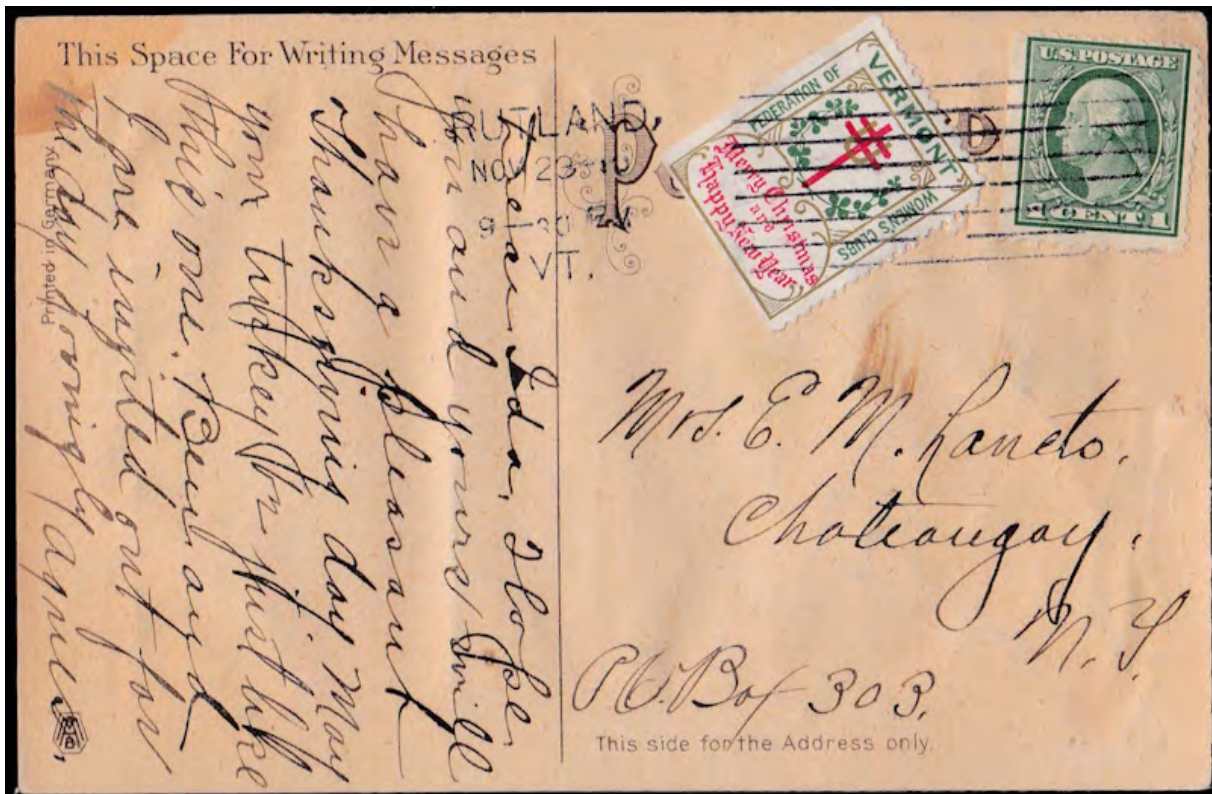 This Space For Writing Messages
Dear Ida, I hope
you and yours will
have a pleasant
Thanksgiving day. May
your turkey be just like
this one. Bem and
I are invited out for
the day. Lovingly Agnes.
Printed in Germany
RUTLAND,
NOV 23
9-30
VT.
FEDERATION OF
VERMONT
WOMEN'S CLUBS
Merry Christmas
and
Happy New Year
U.S. POSTAGE
1 CENT 1
Mrs. E. M. Lancto,
Chateaugay,
N.Y.
P.O. Box 303.
This side for the Address only.